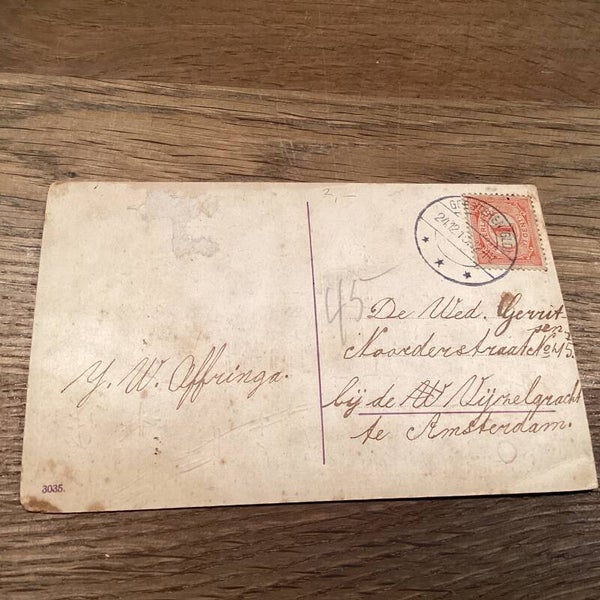 2,-
24.12.13
NEDERLAND
1
45
De Wed. Gerrit-
sen
Noorderstraat No 45.
bij de W Vijzelgracht
te Amsterdam.
Y. W. Offringa.
3035.